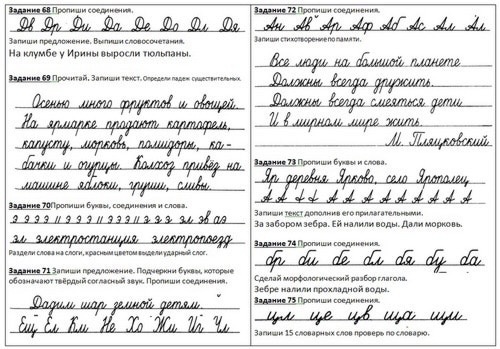 Задание 68 Пропиши соединения.
Дв Др Ди Да Де До Дл Дя
Запиши предложение. Выпиши словосочетания.
На клумбе у Ирины выросли тюльпаны.
Задание 69 Прочитай. Запиши текст. Определи падеж существительных.
Осенью много фруктов и овощей.
На ярмарке продают картофель,
капусту, морковь, помидоры, ка-
бачки и огурцы. Колхоз привёз на
машине яблоки, груши, сливы.
Задание 70 Пропиши буквы, соединения и слова.
эл эв аэ
эл электростанция электропоезд
Раздели слова на слоги, красным цветом выдели ударный слог.
Задание 71 Запиши предложение. Подчеркни буквы, которые
обозначают твёрдый согласный звук. Пропиши соединения.
Дадим шар земной детям.
Ещ Ел Км Не Хо Жи Иг Чл
Задание 72 Пропиши соединения.
Ан Ав Ар Аф Аб Ас Ал Ал
Запиши стихотворение по памяти.
Все люди на большой планете
Должны всегда дружить.
Должны всегда смеяться дети
И в мирном мире жить.
М. Пляцковский
Задание 73 Пропиши буквы и слова.
Яр деревня Ярково, село Ярополец
А А А А А А А А А А А
Запиши текст дополнив его прилагательными.
За забором зебра. Ей налили воды. Дали морковь.
Задание 74 Пропиши соединения.
бр би бе бл бя бу ба
Сделай морфологический разбор глагола.
Зебре налили прохладной воды.
Задание 75 Пропиши соединения.
цл це цв ща щи
Запиши 15 словарных слов проверь по словарю.